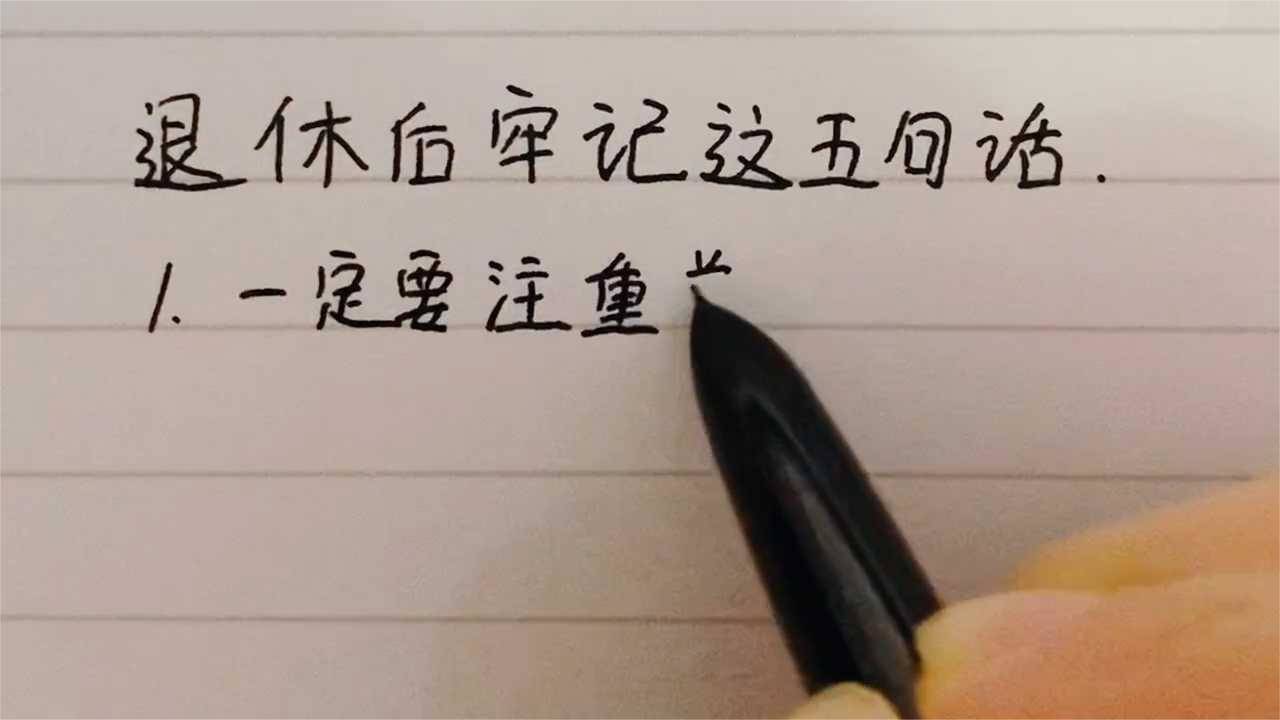 退休后牢记这五句话.
1. 一定要注重